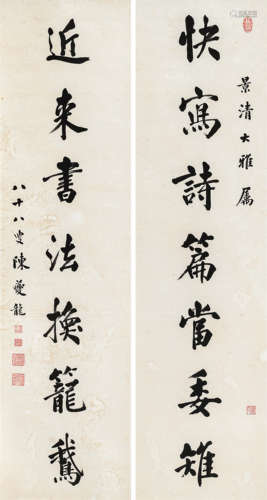 景清大雅属
快寫詩篇當委雉
近来書法換籠鵝
八十八叟陳夔龍